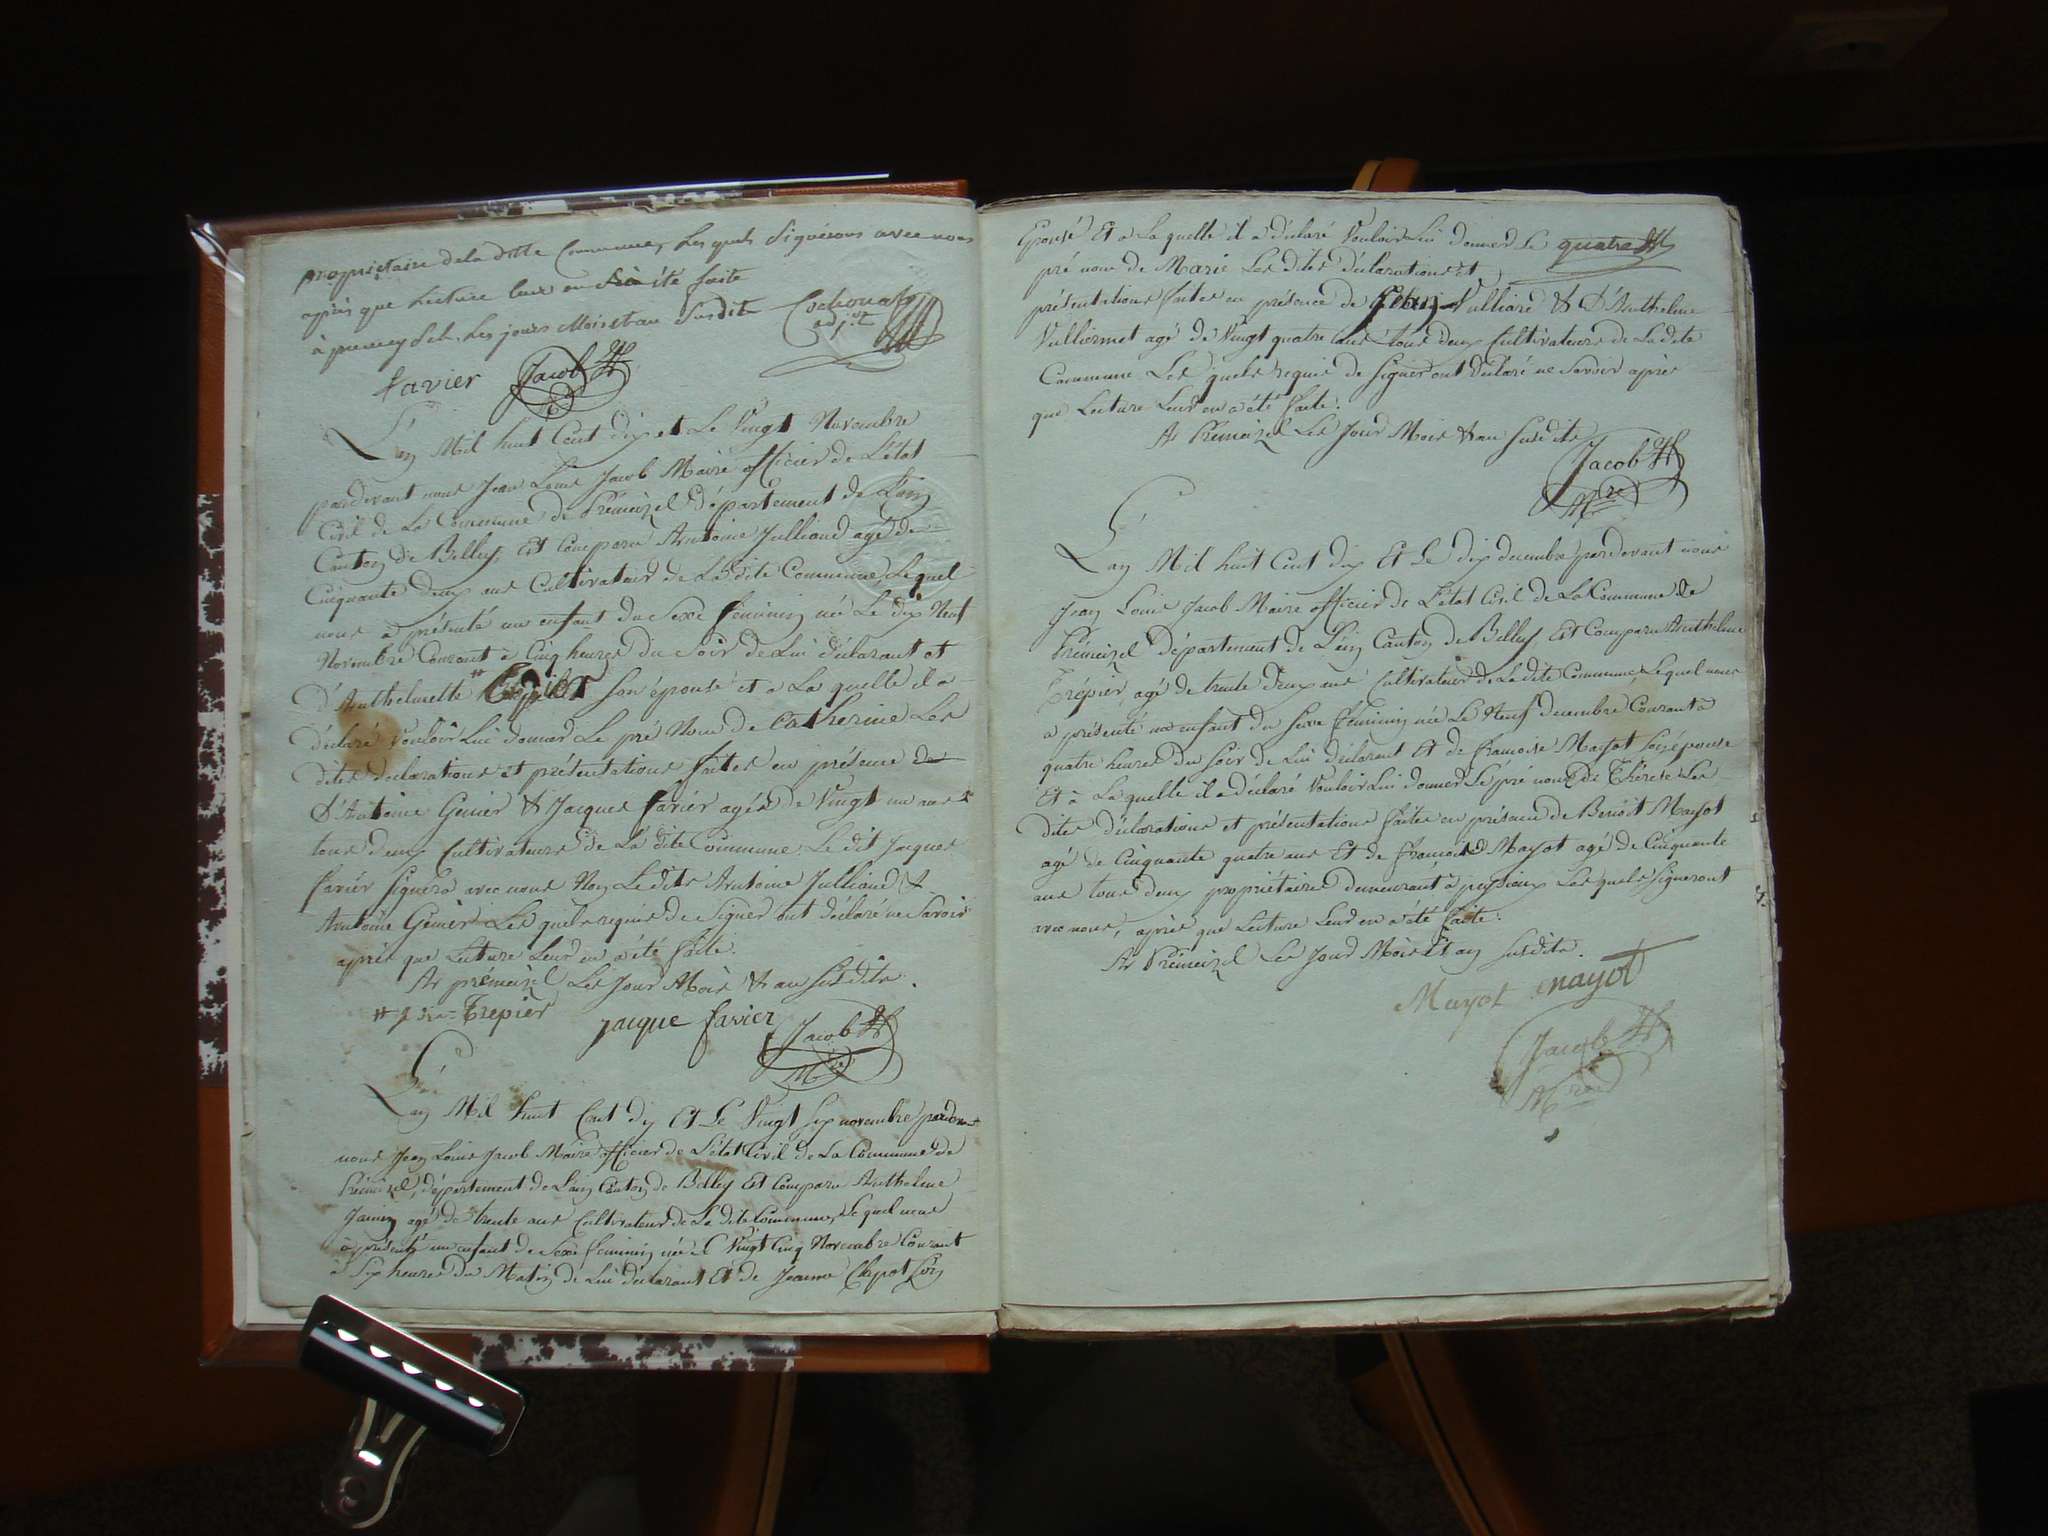 propriétaire de la ditte Commune, Les quels Signérons avec nous
après que Lecture leur en à été faite
à premeyzel, Les jours Mois et an Susdite
adj.t
favier Jacob
L'an Mil huit Cent dix et Le Vingt Novembre
pardevant nous Jean Louis Jacob Maire officier de L'état
Civil de La Commune de Prémeizel Département de L'ain
Canton de Belley, Est Comparu Antoine Julliand agé de
Cinquante Deux ans Cultivateur de La dite Commune, Lequel
nous a présenté un enfant du Sexe féminin née Le dix Neuf
Novembre Courant à Cinq heures du Soir de Lui déclarant et
D'Anthelmette # Son épouse et a La quelle il a
déclaré Vouloir Lui donner Le pré Nom de Catherine Les
dites déclarations et présentations faites en présence de
D'Antoine Genier & Jacques favier agés de Vingt un ans
tous deux Cultivateurs de La dite Commune Le dit Jacques
favier Signera avec nous Non Le dits Antoine Julliand &
Antoine Génier Les quels requis de Signer ont déclaré ne Savoir
après que Lecture Leur en a été faite.
At prémeizel Les Jour Mois & an Susdits.
# Trepier Jacque favier Jacob
Mre
L'an Mil huit Cent dix Et Le Vingt Six novembre pardevant
nous Jean Louis Jacob Maire officier de L'état Civil de La Commune de
Prémeizel, département de L'ain Canton de Belley Est Comparu Anthelme
Janin agé de trente ans Cultivateur de La dite Commune, Lequel nous
à présenté un enfant de Sexe féminin née Le Vingt Cinq Novembre Courant
à Six heures du Matin de Lui déclarant Et de Jeanne Clepot Son
Epouse Et a La quelle il a déclaré Vouloir Lui donner Le quatre
pré nom de Marie Les dites déclarations et
présentations faites en présence de Vulliard & D'Anthelme
Vulliermet agé de Vingt quatre ans tous deux Cultivateurs de La dite
Commune Les quels requis de Signer ont déclaré ne Savoir après
que Lecture Leur en a été faite.
At Prémeizel Les Jour Mois & an Susdits
Jacob
Mre
L'an Mil huit Cent dix Et Le dix decembre pardevant nous
Jean Louis Jacob Maire officier de L'état Civil de La Commune de
Prémeizel département de L'ain Canton de Belley, Est Comparu Anthelme
Trépier, agé de trente deux ans Cultivateur de La dite Commune, Lequel nous
a présenté un enfant du Sexe féminin née Le Neuf decembre Courant à
quatre heures du Soir de Lui déclarant Et de francoise Mayot Son épouse
Et à La quelle il a déclaré Vouloir Lui donner Le pré nom de Thérese Les
dites déclarations et présentations faites en présence de Benoit Mayot
agé de Cinquante quatre ans Et de francois Mayot agé de Cinquante
ans tous deux propriétaires demeurant à peyzieux Les quels Signeront
avec nous, après que Lecture Leur en a été faite.
At Prémeizel Les Jour Mois Et an Susdits.
Mayot mayot
Jacob
Mre